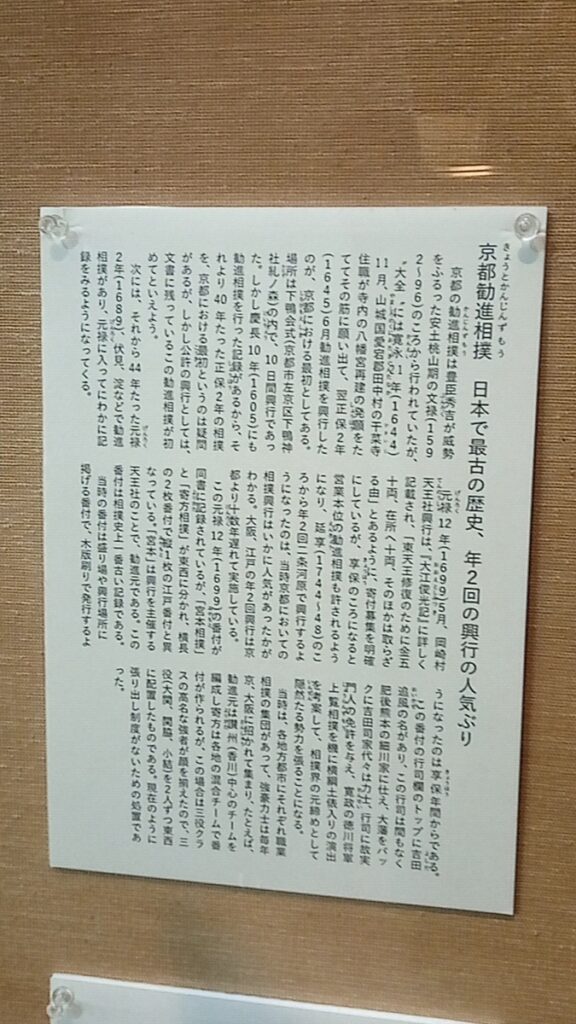 きょうとかんじんずもう
京都勧進相撲　日本で最古の歴史、年2回の興行の人気ぶり
京都の勧進相撲は豊臣秀吉が威勢
をふるった安土桃山期の文禄(159
2～96)のころから行われていたが、
“大全„には寛永1年(1644)
11月、山城国愛宕郡田中村の干菜寺
住職が寺内の八幡宮再建の発願をた
ててその筋に願い出て、翌正保2年
(1645)6月勧進相撲を興行した
のが、京都における最初としてある。
場所は下鴨会式(京都市左京区下鴨神
社糺ノ森)の内で、10日間興行であっ
た。しかし慶長10年(1605)にも
勧進相撲を行った記録があるから、そ
れより40年たった正保2年の相撲
を、京都における最初というのは疑問
があるが、しかし公許の興行としては、
文書に残っているこの勧進相撲が初
めてといえよう。
次には、それから44年たった元禄
2年(1689)、伏見、淀などで勧進
相撲があり、元禄に入ってにわかに記
録をみるようになってくる。
元禄12年(1699)5月、岡崎村
天王社興行は、『大江俊光記』に詳しく
記載され、「東天王修復のために金五
十両、在所へ十両、そのほかは取らざ
る由」とあるように、寄付募集を明確
にしているが、享保のころになると
営業本位の勧進相撲も許されるよう
になり、延享(1744～48)のこ
ろから年2回二条河原で興行するよ
うになったのは、当時京都においての
相撲興行はいかに人気があったかが
わかる。大阪、江戸の年2回興行は京
都より十数年遅れて実施している。
この元禄12年(1699)の番付が
同書に記録されているが、「宮本相撲」
と「寄方相撲」が東西に分かれ、横長
の2枚番付で縦1枚の江戸番付と異
なっている。「宮本」は興行を主催する
天王社のことで、勧進元である。この
番付は相撲史上一番古い記録である。
当時の番付は盛り場や興行場所に
掲げる番付で、木版刷りで発行するよ
うになったのは享保年間からである。
この番付の行司欄のトップに吉田
追風の名があり、この行司は間もなく
肥後熊本の細川家に仕え、大藩をバッ
クに吉田司家代々は力士、行司に故実
門人の免許を与え、寛政の徳川将軍
上覧相撲を機に横綱土俵入りの演出
を考案して、相撲界の元締めとして
隠然たる勢力を張ることになる。
当時は、各地方都市にそれぞれ職業
相撲の集団があって、強豪力士は毎年
京、大阪に招かれて集まり、たとえば、
勧進元は讃州(香川)中心のチームを
編成し寄方は各地の混合チームで番
付が作られるが、この場合は三役クラ
スの高名な強者が顔を揃えたので、三
役(大関、関脇、小結)を2人ずつ東西
に配置したものである。現在のように
張り出し制度がないための処置であ
った。